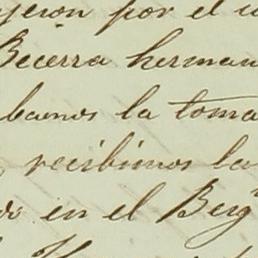 yeron por el
Becerra herman
bamos la toma
recibimos la
do en el Berg